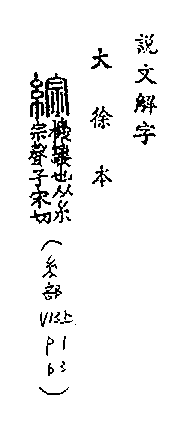 説文解字
大徐本
綜機縷也从糸
宗聲子宋切
(糸部
V13上
P1
b3)